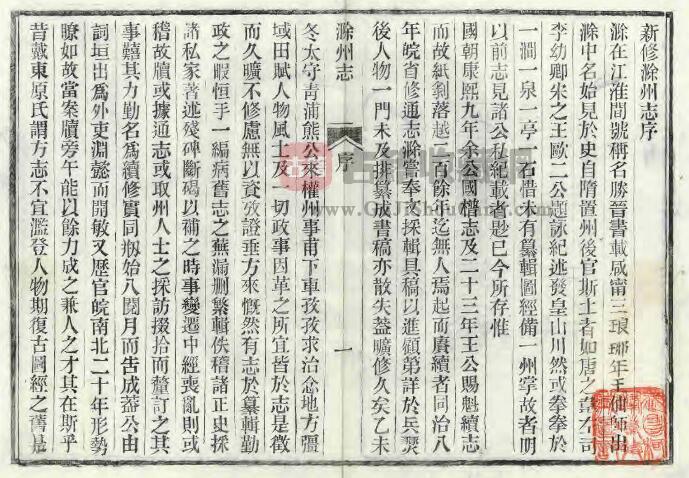 新修滁州志序
滁在江淮間號稱名勝晉書載咸甯三琅琊年王伷師出
滁中名始見於史自隋置州後官斯土者如唐之韋左司
李幼卿宋之王歐二公題詠紀述發皇山川然或拳拳於
一澗一泉一亭一石惜未有纂輯圖經備一州掌故者明
以前志見諸公私紀載者尟已今所存惟
國朝康熙九年余公國𣚴志及二十三年王公賜魁續志
而故紙剝落越二百餘年迄無人焉起而賡續者同治八
年皖省修通志滁嘗奉文採輯具稿以進顧第詳於兵燹
後人物一門未及排纂成書稿亦散失蓋曠修久矣乙未
滁州志
序
一
冬太守青浦熊公來權州事甫下車孜孜求治念地方疆
域田賦人物風土及一切政事因革之所宜皆於志是徵
而久曠不修慮無以資攷證垂方來慨然有志於纂輯勤
政之暇恒手一編病舊志之蕪漏刪繁輯佚稽諸正史採
諸私家著述殘碑斷碣以補之時事變遷中經喪亂則或
稽故牘或據通志或取州人士之採訪掇拾而釐訂之其
事囏其力勤名為續修實同刱始八閱月而告成蓋公由
詞垣出為外吏淵懿而開敏又歷官皖南北二十年形勢
瞭如故當案牘旁午能以餘力成之兼人之才其在斯乎
昔戴東原氏謂方志不宜濫登人物期復古圖經之舊是